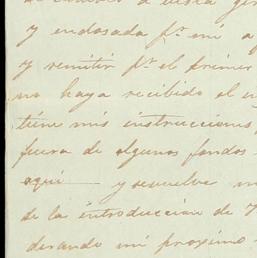 de cambio á vista gir
y endosada pr. mí a
y remitir pr. el primer
no haya recibido el
tiene mis instrucciones
fuera de algunos fondos
aquí — y resuelve
de la introducción de
derando mi proximo